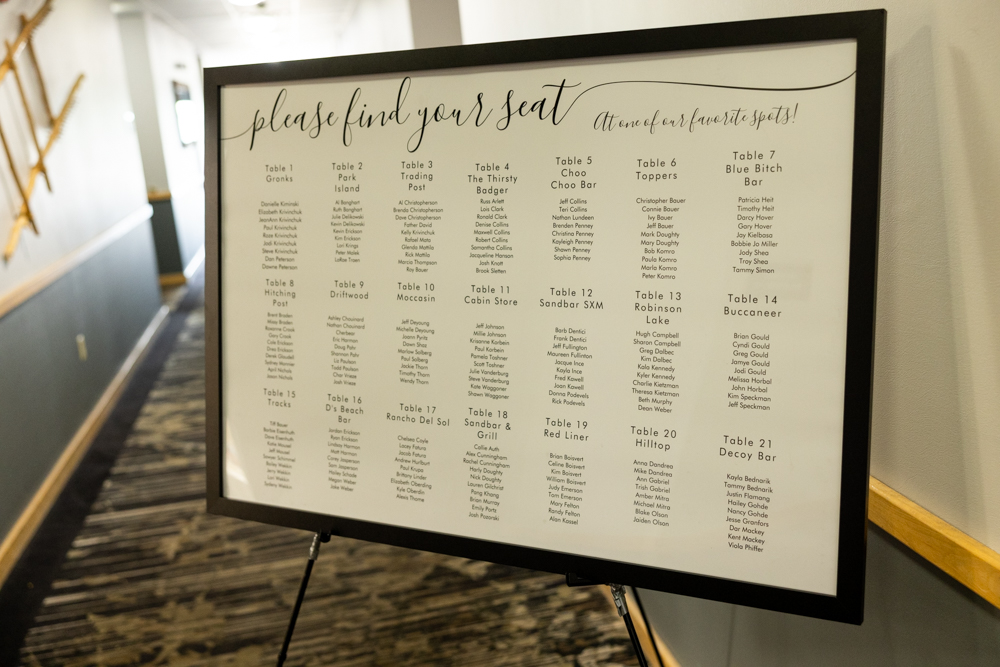 please find your seat
At one of our favorite spots!
Table 1
Granks
Danielle Kininski
Elizabeth Krivinchuk
JeanAnn Krivinchuk
Paul Krivinchuk
Rose Krivinchuk
Jodi Krivinchuk
Steve Krivinchuk
Dan Peterson
Dawne Peterson
Table 2
Park
Island
Al Banghart
Ruth Banghart
Julie Delikowski
Kevin Delikowski
Kevin Erickson
Kim Erickson
Lori Krings
Peter Malek
LaRae Traen
Table 3
Trading
Post
Al Christopherson
Brenda Christopherson
Dave Christopherson
Father David
Kelly Krivinchuk
Rafael Mata
Glenda Mattila
Rick Mattila
Marcia Thompson
Ray Bauer
Table 4
The Thirsty
Badger
Russ Arlett
Lois Clark
Ronald Clark
Denise Collins
Maxwell Collins
Robert Collins
Samantha Collins
Jacqueline Hanson
Josh Knott
Brook Sletten
Table 5
Choo
Choo Bar
Jeff Collins
Teri Collins
Nathan Lundeen
Brenden Penney
Christina Penney
Kayleigh Penney
Shawn Penney
Sophia Penney
Table 6
Toppers
Christopher Bauer
Connie Bauer
Ivy Bauer
Jeff Bauer
Mark Doughty
Mary Doughty
Bob Komro
Paula Komro
Marla Komro
Peter Komro
Table 7
Blue Bitch
Bar
Patricia Heit
Timothy Heit
Darcy Hover
Gary Hover
Jay Kielbasa
Bobbie Jo Miller
Jody Shea
Troy Shea
Tammy Simon
Table 8
Hitching
Post
Brent Braden
Missy Braden
Roxanne Crook
Gary Crook
Cole Erickson
Greg Erickson
Derek Glaudell
Sydney Monroe
April Nichols
Jason Nichols
Table 9
Driftwood
Ashley Chouinard
Nathan Chouinard
Eric Harmon
Doug Pahr
Shannon Pahr
Liz Paulson
Todd Paulson
Char Vriese
Josh Vriese
Table 10
Moccasin
Jeff Deyoung
Michelle Deyoung
Joann Peritz
Dawn Shaz
Marlow Solberg
Paul Solberg
Jackie Thorn
Timothy Thorn
Wendy Thorn
Table 11
Cabin Store
Jeff Johnson
Millie Johnson
Krisanne Korbein
Paul Korbein
Pamela Toshner
Scott Toshner
Julie Vanderburg
Steve Vanderburg
Kate Waggoner
Shawn Waggoner
Table 12
Sandbar SXM
Barb Dentici
Frank Dentici
Jeff Fullington
Maureen Fullinton
Jacque Ince
Kayla Ince
Fred Kawell
Joan Kawell
Donna Podevels
Rick Podevels
Table 13
Robinson
Lake
Hugh Campbell
Sharon Campbell
Greg Dalbec
Kim Dalbec
Kala Kennedy
Kyler Kennedy
Charlie Kietzman
Theresa Kietzman
Beth Murphy
Dean Weber
Table 14
Buccaneer
Brian Gould
Cyndi Gould
Greg Gould
Jamye Gould
Jodi Gould
Melissa Horbal
John Horbal
Kim Speckman
Jeff Speckman
Table 15
Tracks
Tiff Bauer
Barbie Eisenhuth
Dave Eisenhuth
Kate Mausel
Jeff Mausel
Sawyer Schimmel
Bailey Wiekin
Jerry Wiekin
Lori Wiekin
Sydany Wiekin
Table 16
D's Beach
Bar
Jordan Erickson
Ryan Erickson
Lindsay Harmon
Matt Harmon
Corey Jasperson
Sam Jasperson
Hailey Schade
Megan Weber
Jake Weber
Table 17
Rancho Del Sol
Chelsea Coyle
Lacey Fatura
Jacob Fatura
Andrew Hurlburt
Paul Krupa
Brittany Linder
Elizabeth Oberding
Kyle Oberdin
Alexis Thome
Table 18
Sandbar &
Grill
Callie Auth
Alex Cunningham
Rachel Cunningham
Harly Doughty
Nick Doughty
Lauren Gilchrist
Pang Khang
Brian Murray
Emily Portz
Josh Pozorski
Table 19
Red Liner
Brian Boisvert
Celine Boisvert
Kim Boisvert
William Boisvert
Judy Emerson
Tom Emerson
Mary Felton
Randy Felton
Alan Kassel
Table 20
Hilltop
Anna Dandrea
Mike Dandrea
Ann Gabriel
Trish Gabriel
Amber Mitra
Michael Mitra
Blake Olson
Jaiden Olson
Table 21
Decoy Bar
Kayla Bednarik
Tammy Bednarik
Justin Flamang
Hailey Gohde
Nancy Gohde
Jesse Granfors
Dar Mackey
Kent Mackey
Viola Phiffer